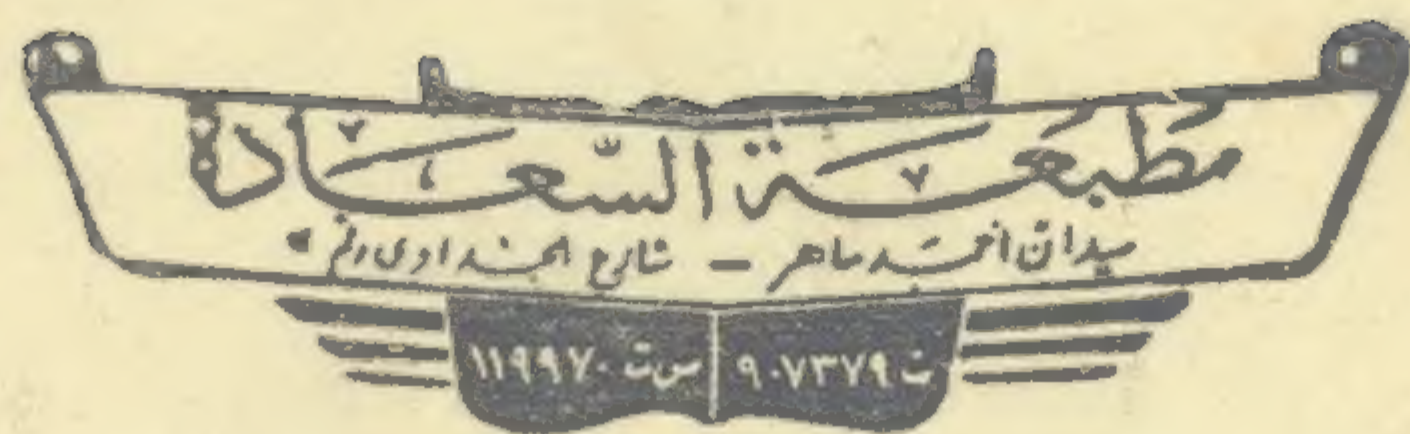 مطبعة السّعادة
ميدان أحمد ماهر — شارع الجداوى رقم ٥
ت ٩٠٧٣٧٩ | س ت ١١٩٩٧٠